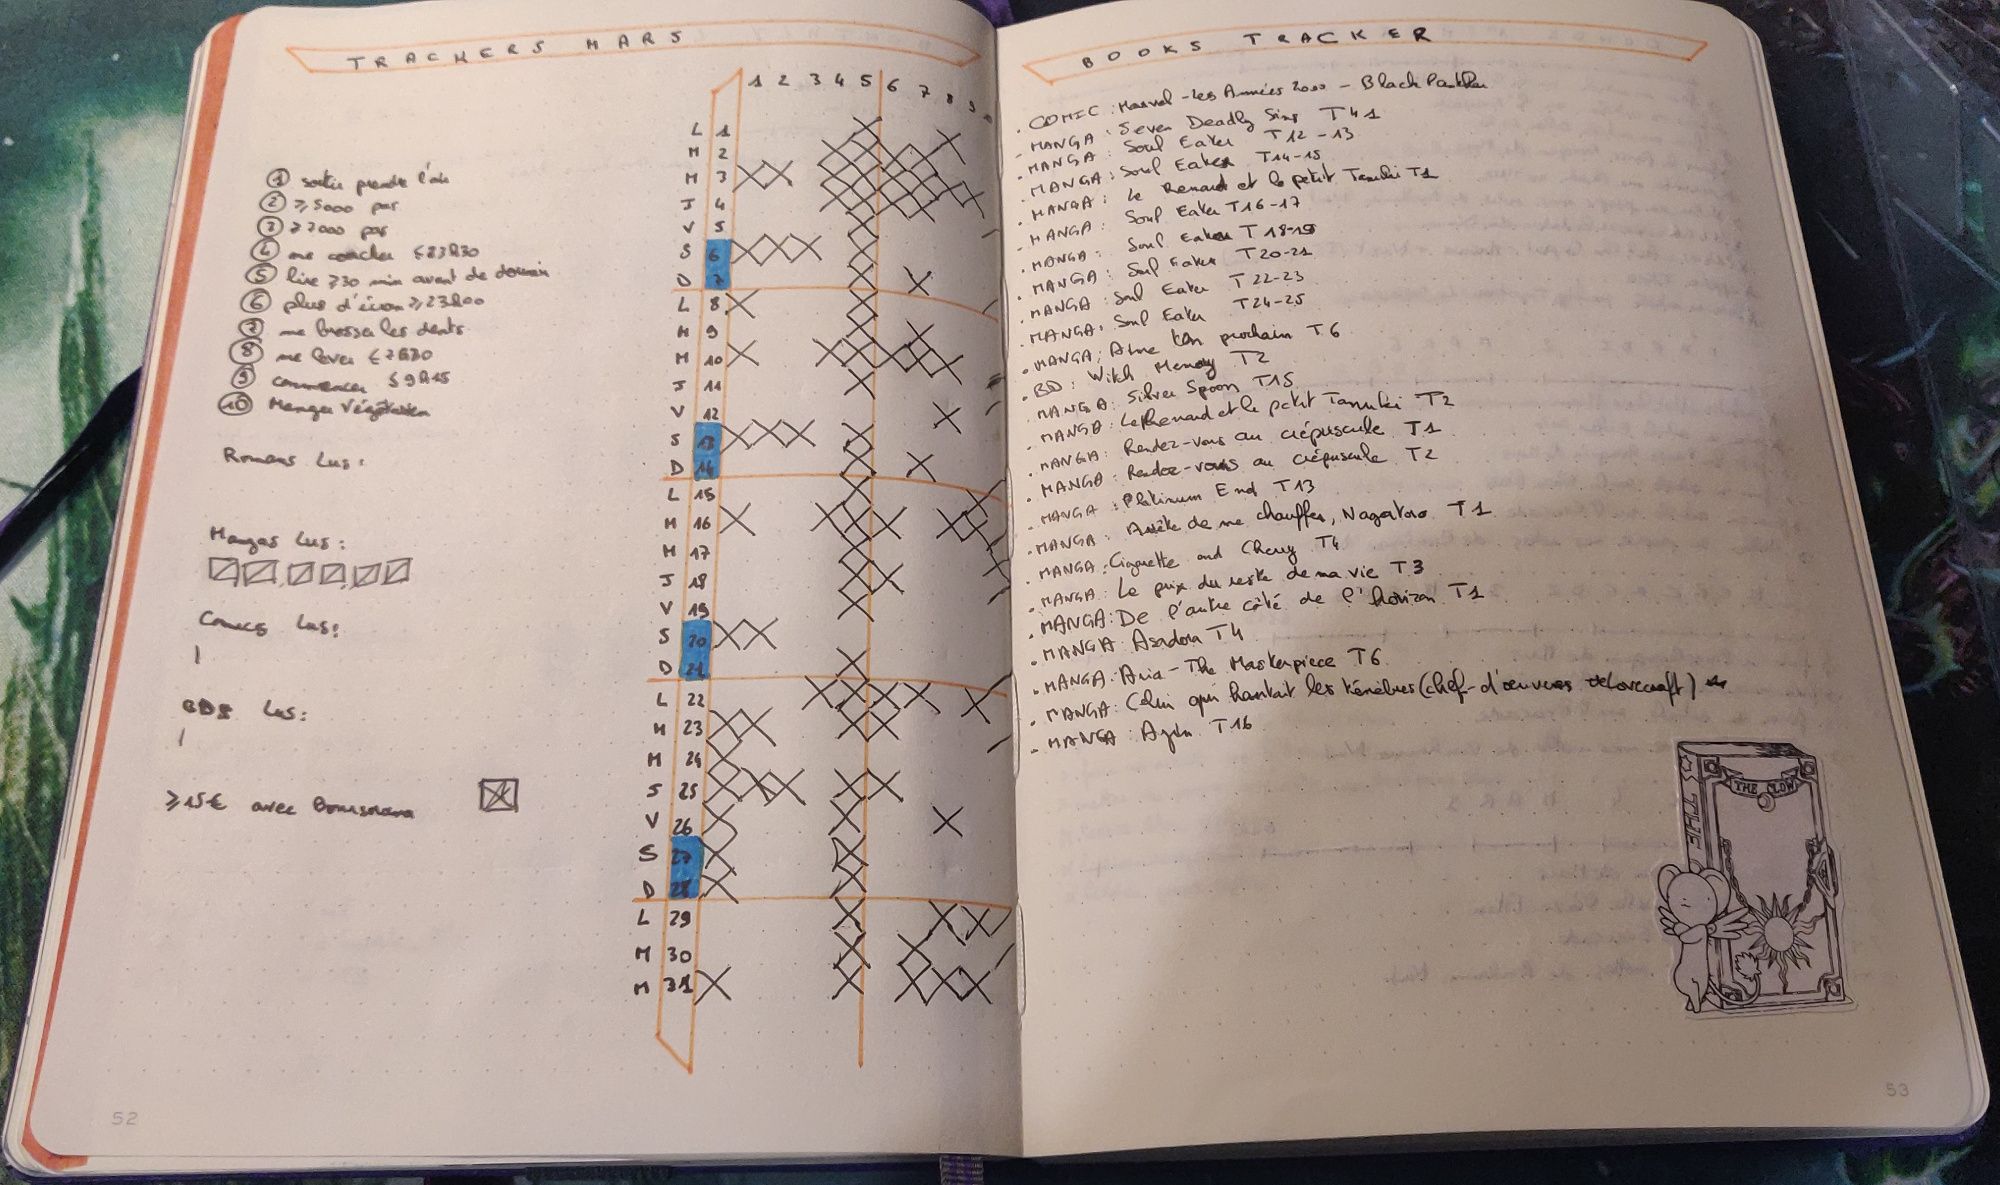 TRACKERS MARS
1 2 3 4 5 6 7 8 9
L 1
M 2
M 3
J 4
V 5
S 6
D 7
L 8
M 9
M 10
J 11
V 12
S 13
D 14
L 15
M 16
M 17
J 18
V 19
S 20
D 21
L 22
M 23
M 24
J 25
V 26
S 27
D 28
L 29
M 30
M 31
① sortir prendre l'air
② ≥ 5000 pas
③ ≥ 7000 pas
④ me coucher ≤ 23h30
⑤ lire ≥ 30 min avant de dormir
⑥ plus d'écran ≥ 23h00
⑦ me brosser les dents
⑧ me lever ≤ 7h30
⑨ commencer ≤ 9h15
⑩ Manger Végétarien
Romans lus :
Mangas lus :
Comics lus :
|
BDs lus :
|
≥ 15€ avec Boursorama
52
BOOKS TRACKER
. COMIC : Marvel - Les Années 2000 - Black Panther
. MANGA : Seven Deadly Sins T41
. MANGA : Soul Eater T12-13
. MANGA : Soul Eater T14-15
. MANGA : Le Renard et le petit Tanuki T1
. MANGA : Soul Eater T16-17
. MANGA : Soul Eater T18-19
. MANGA : Soul Eater T20-21
. MANGA : Soul Eater T22-23
. MANGA : Soul Eater T24-25
. MANGA : Aime ton prochain T6
. BD : Witch Memory T2
. MANGA : Silver Spoon T15
. MANGA : Le Renard et le petit Tanuki T2
. MANGA : Rendez-vous au crépuscule T1
. MANGA : Rendez-vous au crépuscule T2
. MANGA : Platinum End T13
. MANGA : Arrête de me chauffer, Nagatoro T1
. MANGA : Cigarette and Cherry T4
. MANGA : Le prix du reste de ma vie T3
. MANGA : De l'autre côté de l'horizon T1
. MANGA : Asadora T4
. MANGA : Aria - The Masterpiece T6
. MANGA : Celui qui hantait les ténèbres (chef-d'œuvres Lovecraft)
. MANGA : Ajin T16
THE CLOW
THE
53